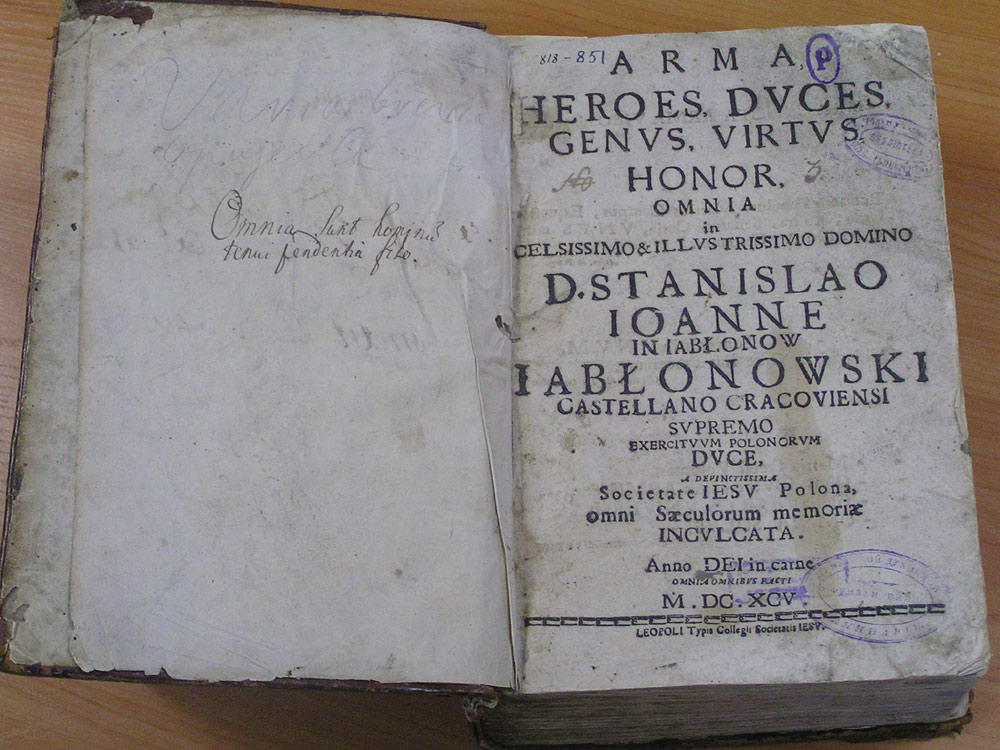 Omnia sunt hominū
tenui pendentia filo.
818-851
ARMA,
HEROES, DVCES,
GENVS, VIRTVS,
HONOR,
OMNIA
in
CELSISSIMO & ILLVSTRISSIMO DOMINO
D. STANISLAO
IOANNE
IN IABŁONOW
IABŁONOWSKI
CASTELLANO CRACOVIENSI
SVPREMO
EXERCITVVM POLONORVM
DVCE,
A DEVINCTISSIMA
Societate IESV Polona,
omni Sæculorum memoriæ
INCVLCATA.
Anno DEI in carne
OMNIA OMNIBVS FACTI
M. DC. XCV.
LEOPOLI Typis Collegii Societatis IESV.